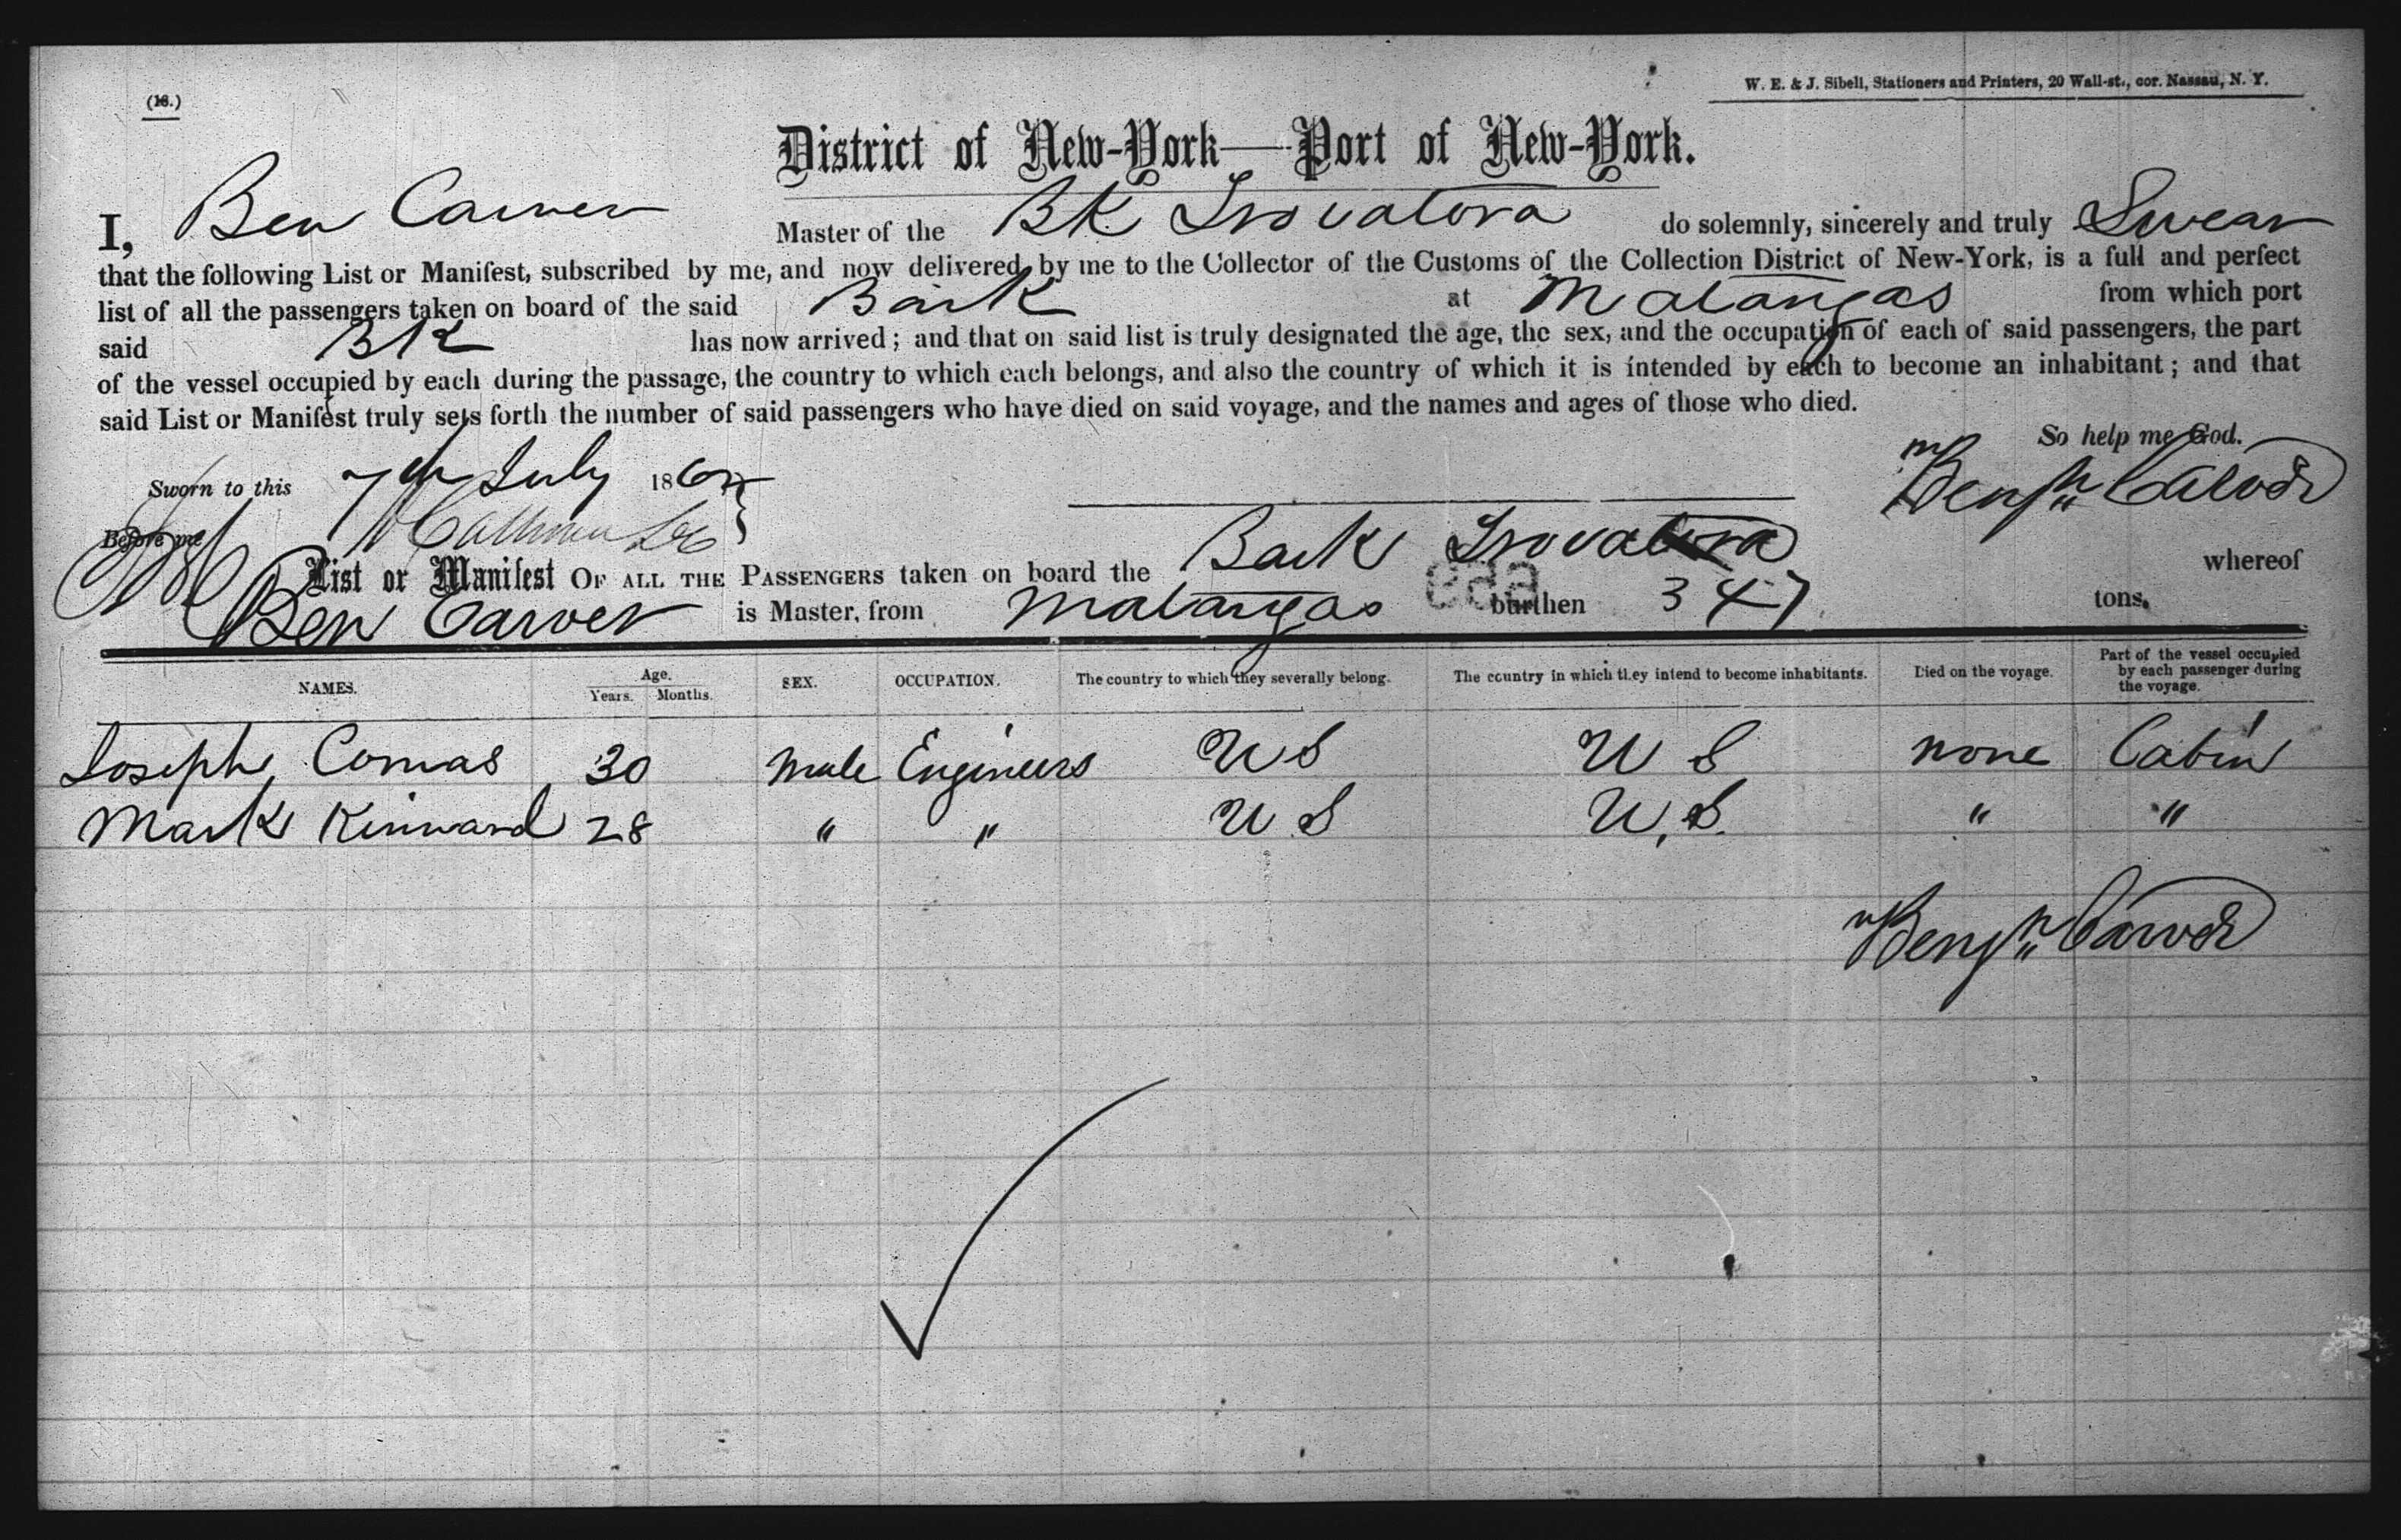 (18.)
W. E. & J. Sibell, Stationers and Printers, 20 Wall-st., cor. Nassau, N. Y.
District of New-York—Port of New-York.
I, Ben Carver Master of the BK Trovatora do solemnly, sincerely and truly Swear
that the following List or Manifest, subscribed by me, and now delivered by me to the Collector of the Customs of the Collection District of New-York, is a full and perfect
list of all the passengers taken on board of the said Bark at Matanzas from which port
said BK has now arrived; and that on said list is truly designated the age, the sex, and the occupation of each of said passengers, the part
of the vessel occupied by each during the passage, the country to which each belongs, and also the country of which it is intended by each to become an inhabitant; and that
said List or Manifest truly sets forth the number of said passengers who have died on said voyage, and the names and ages of those who died.
So help me God.
Sworn to this 7th July 186
Benjn Carver
Before me
List or Manifest OF ALL THE PASSENGERS taken on board the Bark Trovatora whereof
Ben Carver is Master, from Matanzas burthen 347 tons.
NAMES. Age. Years. Months. SEX. OCCUPATION. The country to which they severally belong. The country in which they intend to become inhabitants. Died on the voyage. Part of the vessel occupied by each passenger during the voyage.
Joseph Comas 30 Male Engineers US U S none Cabin
Mark Kinward 28 " " U S U.S. " "
Benjn Carver